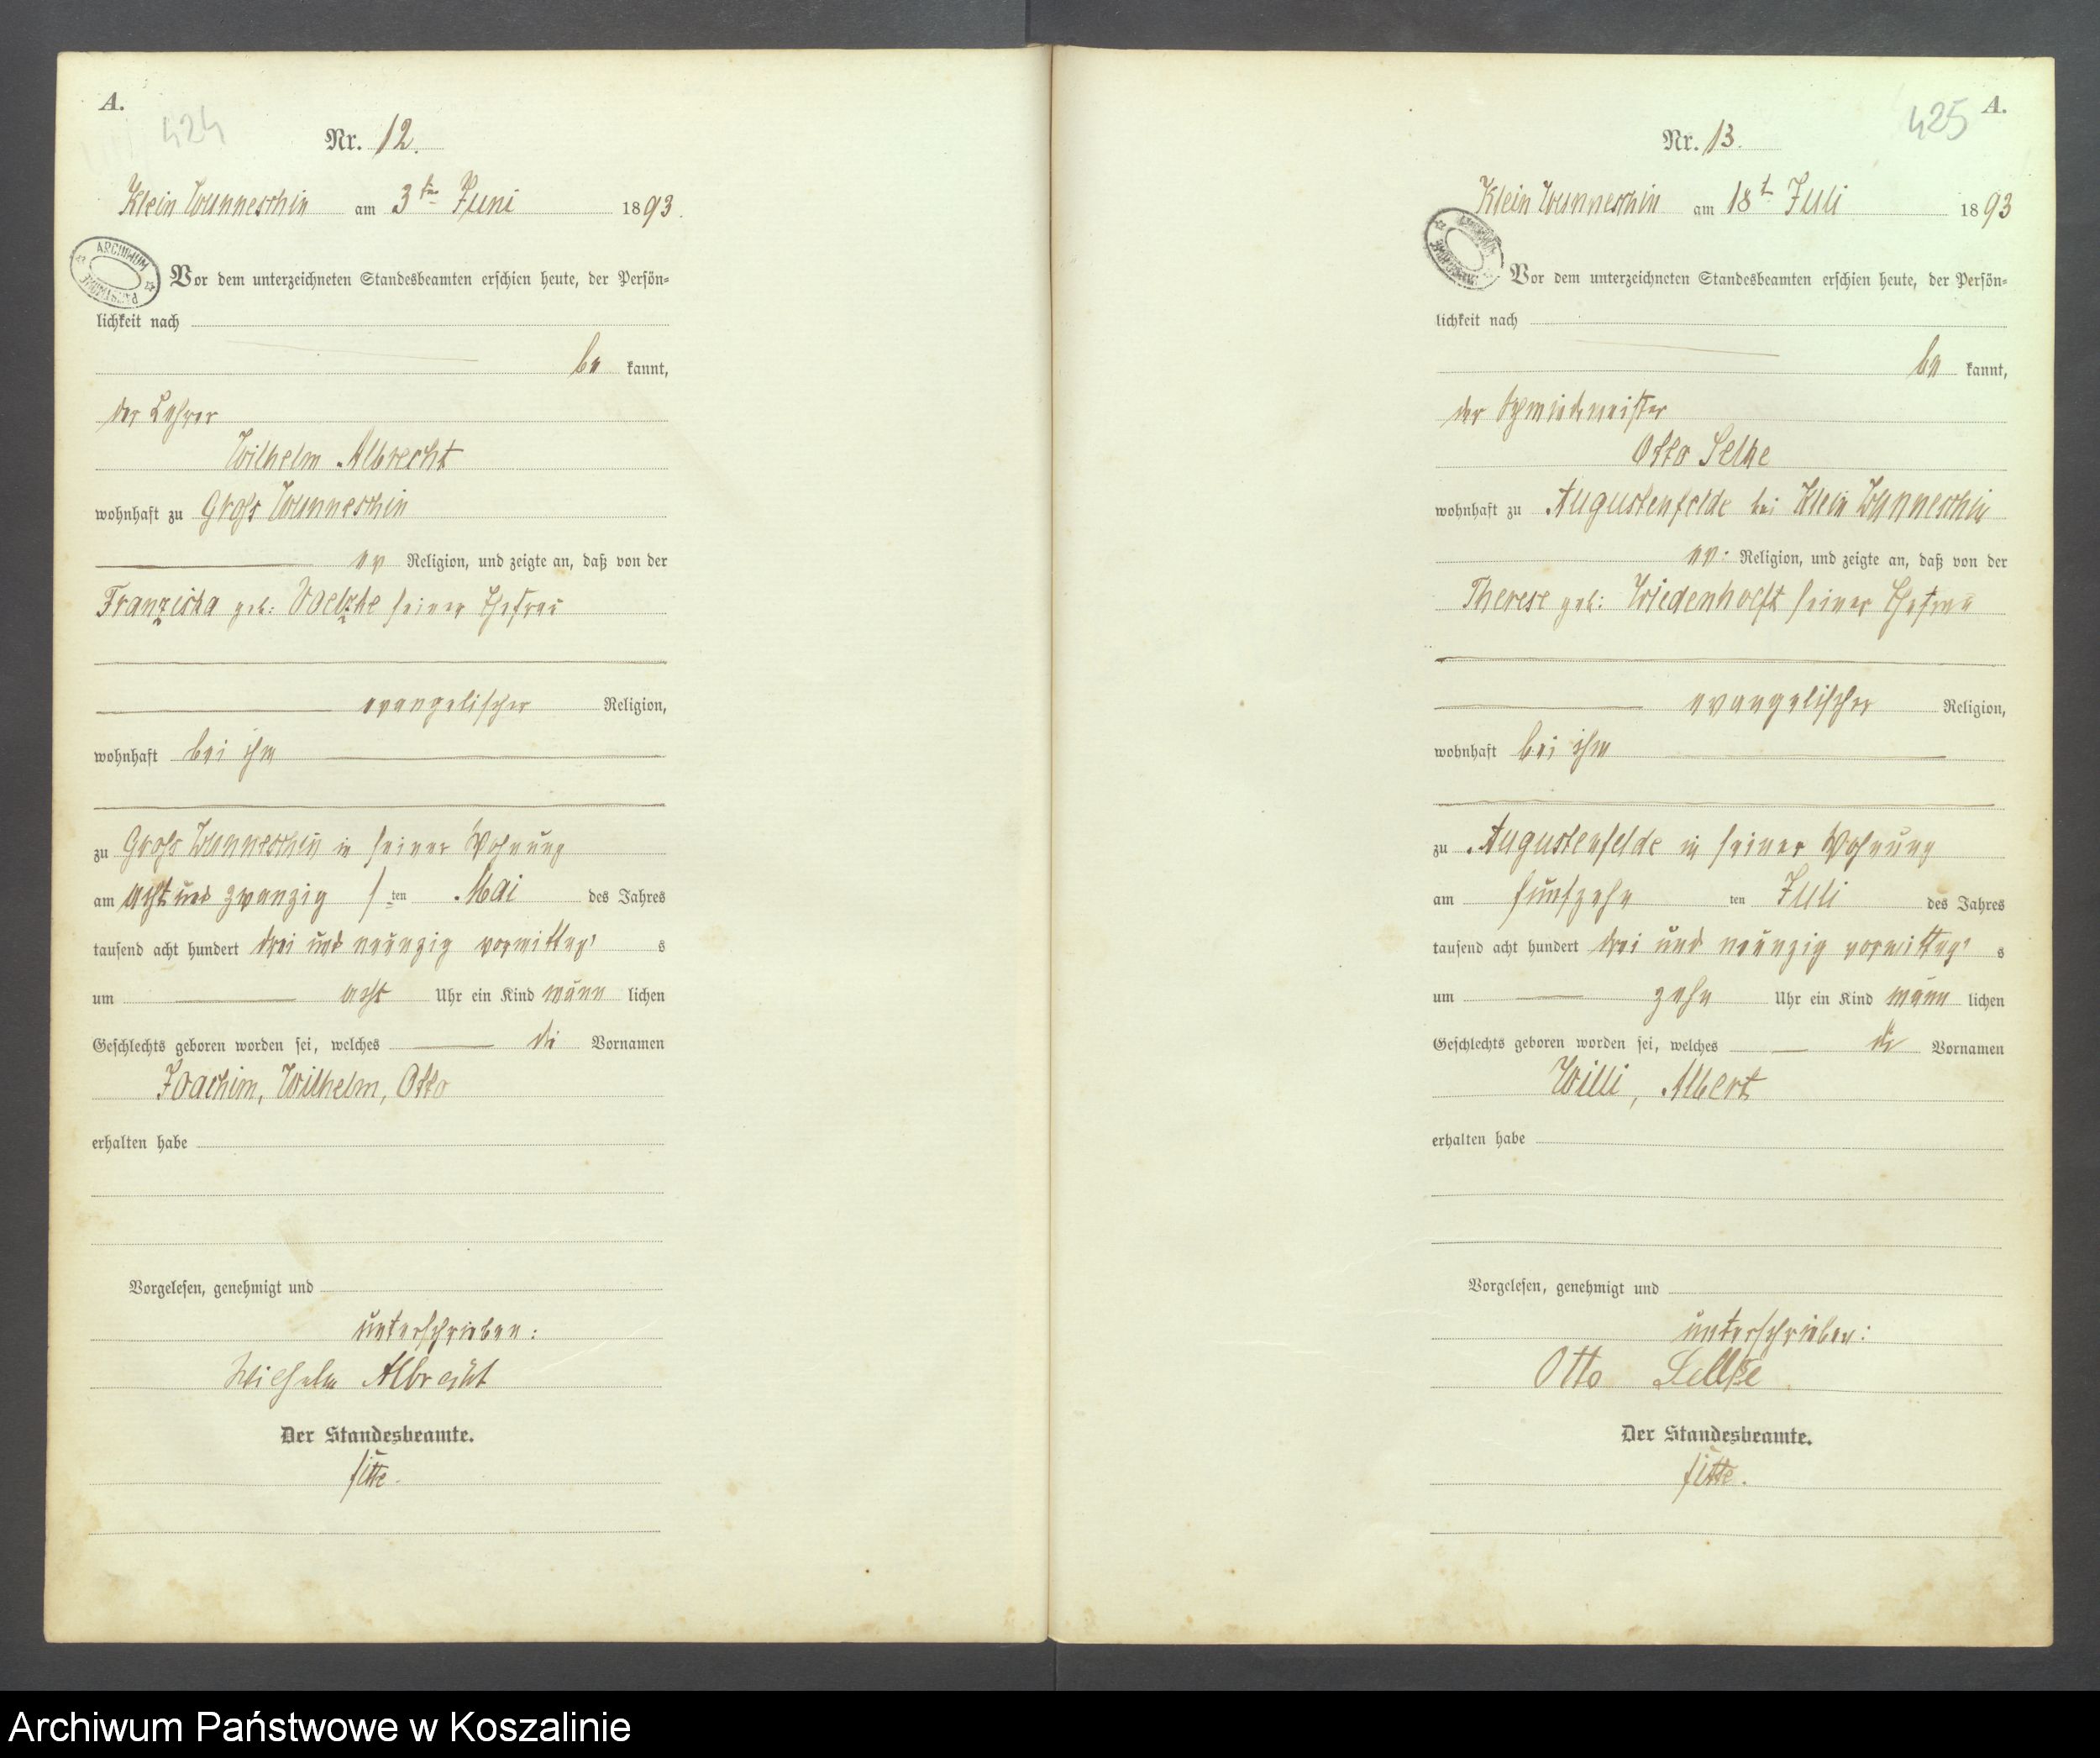 A.
424
Nr. 12.
Klein Wunneschin am 3ten Juni 1893.
ARCHIWUM PAŃSTWOWE
Vor dem unterzeichneten Standesbeamten erschien heute, der Persön-
lichkeit nach
be kannt,
der Lehrer
Wilhelm Albrecht
wohnhaft zu Groß Wunneschin
ev Religion, und zeigte an, daß von der
Franziska geb: Voelzke seiner Ehefrau
evangelischer Religion,
wohnhaft bei ihm
zu Groß Wunneschin in seiner Wohnung
am acht und zwanzig sten Mai des Jahres
tausend acht hundert drei und neunzig vormittags
um acht Uhr ein Kind männlichen
Geschlechts geboren worden sei, welches die Vornamen
Joachim, Wilhelm, Otto
erhalten habe
Vorgelesen, genehmigt und
unterschrieben:
Wilhelm Albrecht
Der Standesbeamte.
A.
425
Nr. 13.
Klein Wunneschin am 18t Juli 1893
Vor dem unterzeichneten Standesbeamten erschien heute, der Persön-
lichkeit nach
be kannt,
der Schmiedemeister
Otto Selke
wohnhaft zu Augustenfelde bei Klein Wunneschin
ev: Religion, und zeigte an, daß von der
Therese geb: Wiedenhoeft seiner Ehefrau
evangelischer Religion,
wohnhaft bei ihm
zu Augustenfelde in seiner Wohnung
am fünfzehn ten Juli des Jahres
tausend acht hundert drei und neunzig vormittags
um zehn Uhr ein Kind männlichen
Geschlechts geboren worden sei, welches die Vornamen
Willi, Albert
erhalten habe
Vorgelesen, genehmigt und
unterschrieben:
Otto Sellke
Der Standesbeamte.
Archiwum Państwowe w Koszalinie